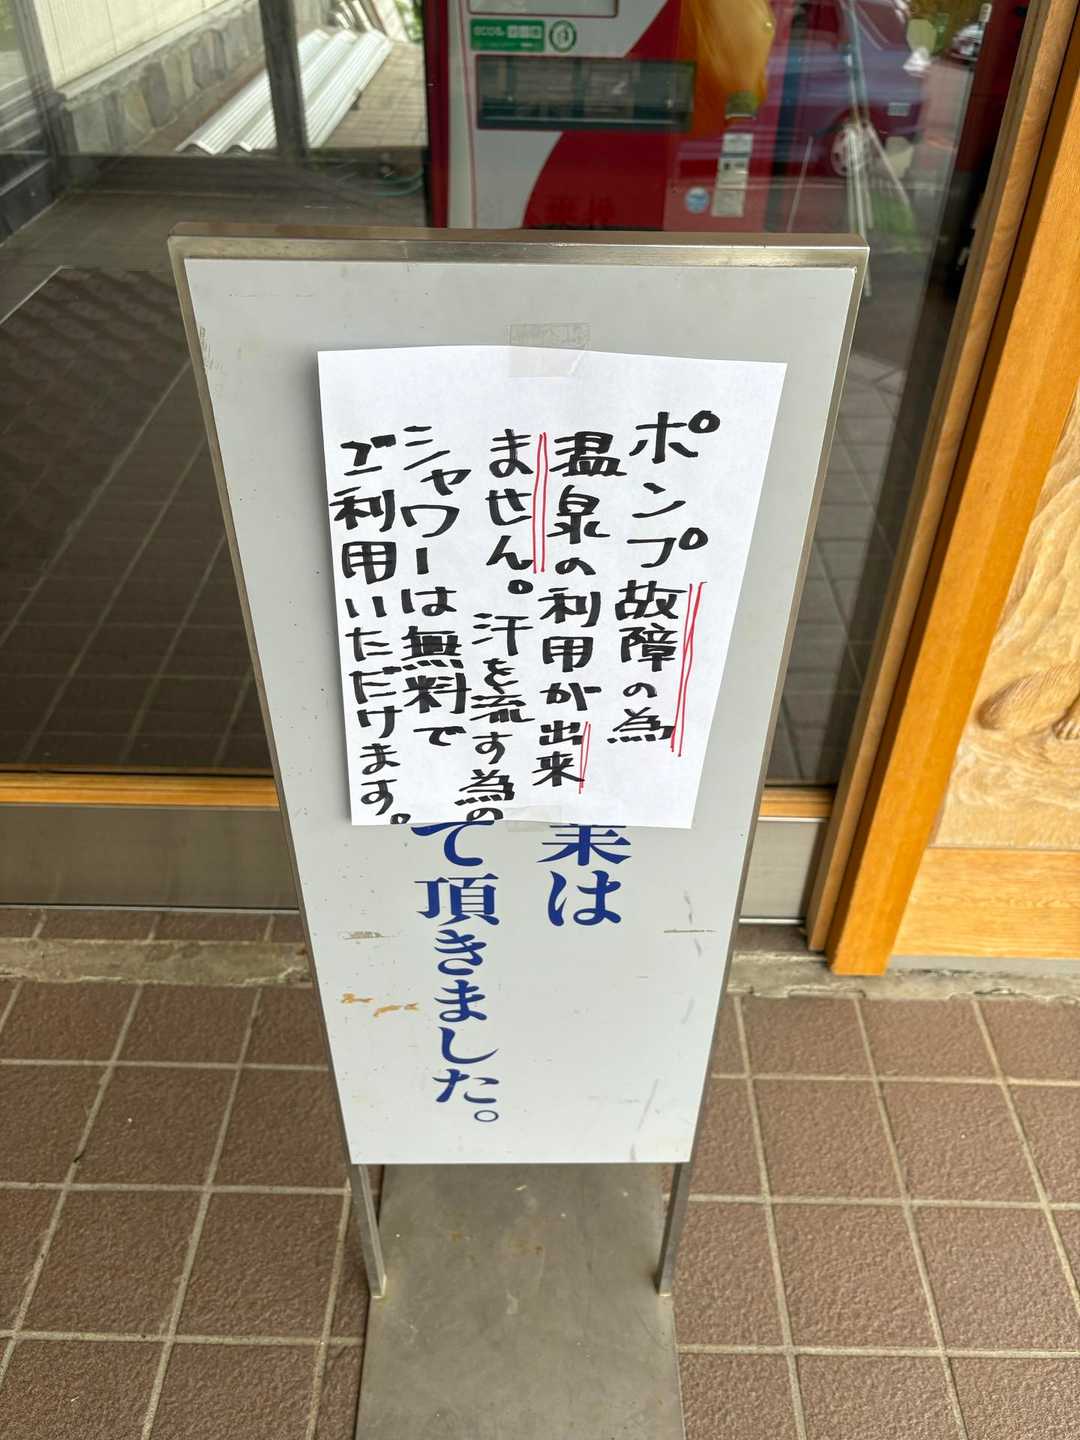 ポンプ故障の為
温泉の利用が出来
ません。汗を流す為の
シャワーは無料で
ご利用いただけます。
業は
て頂きました。